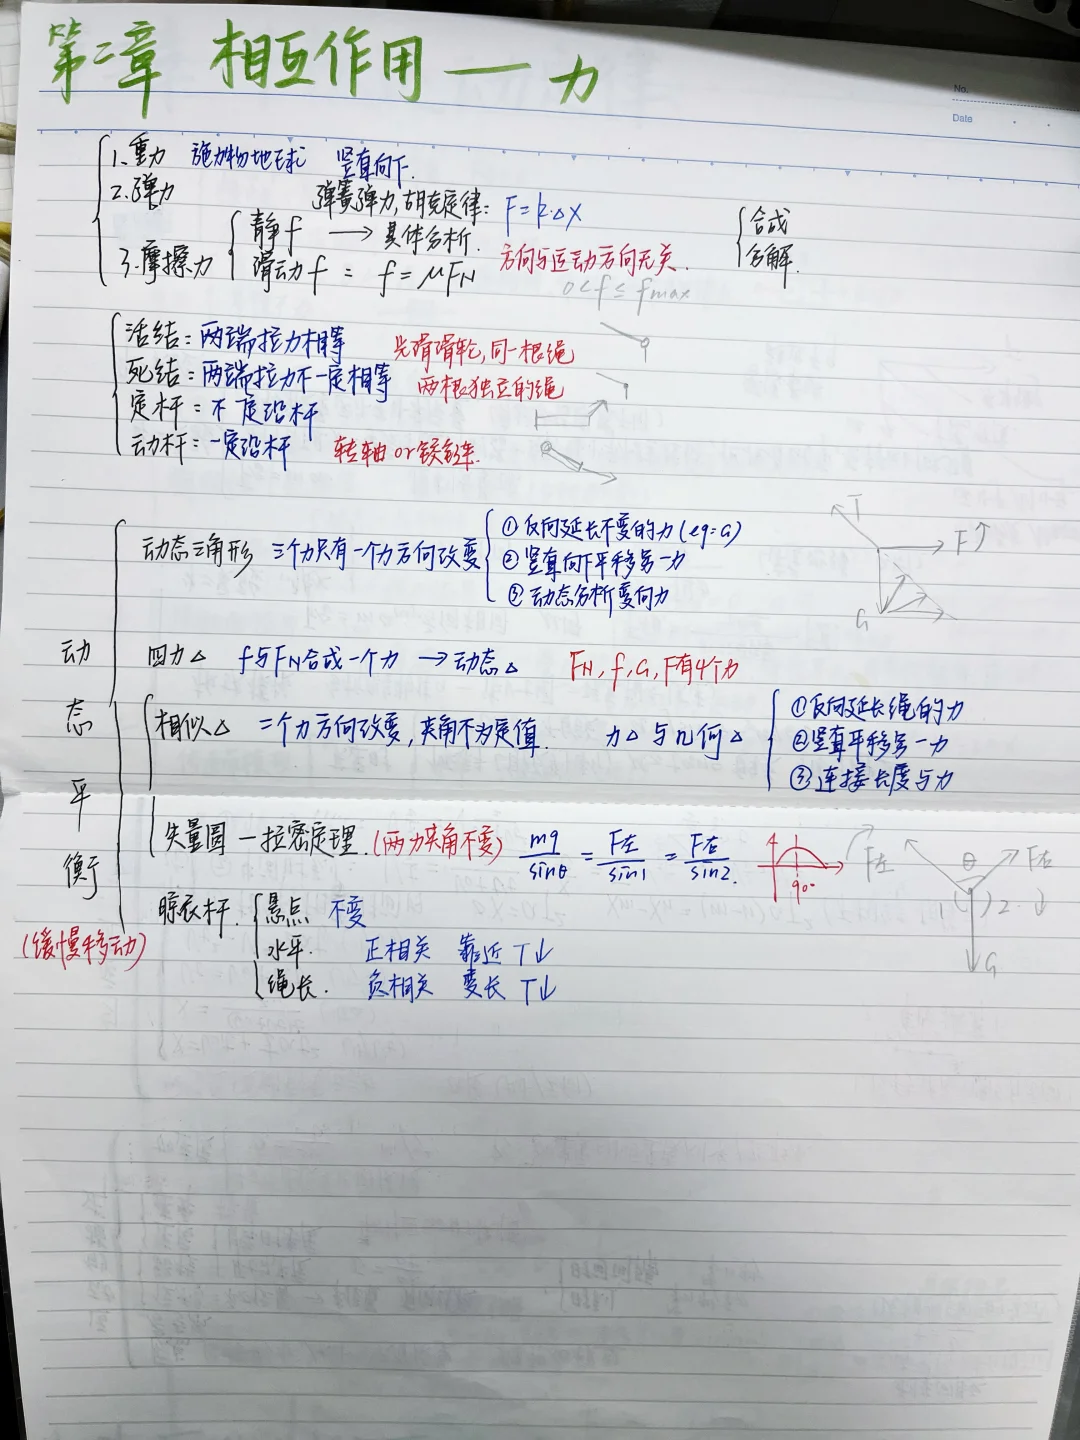 第二章 相互作用 — 力
No.
Date
1.重力 施力物地球 竖直向下.
2.弹力 弹簧弹力,胡克定律: F=k·Δx
3.摩擦力
静f → 具体分析.
滑动f = f=μFN 方向与运动方向无关.
0<f≤fmax
合成
分解.
活结:两端拉力相等 光滑滑轮,同一根绳
死结:两端拉力不一定相等 两根独立的绳
定杆=不一定沿杆
动杆=一定沿杆 转轴or铰链.
动态平衡
(缓慢移动)
动态三角形 三个力只有一个力方向改变
①反向延长不变的力(eg:G)
②竖直向下平移另一力
③动态分析变向力
T
F↑
G
四力△ f与FN合成一个力→动态△ FN,f,G,F有4个力
相似△ 二个力方向改变,夹角不为定值. 力△与几何△
①反向延长绳的力
②竖直平移另一力
③连接长度与力
矢量圆—拉密定理.(两力夹角不变) mg/sinθ = F左/sin1 = F右/sin2.
90°
F左
θ
F右
1 2.
G
晾衣杆.
悬点 不变
水平. 正相关 靠近 T↓
绳长. 负相关 变长 T↓